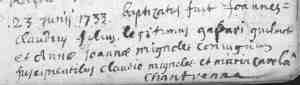 23 junij 1733. baptizatus fuit Joannes =
Claudius filius legitimus gaspari
et Annæ Joannæ mignolet conjugum
suscipientibus Claudio mignolet et maria
Chantrenne